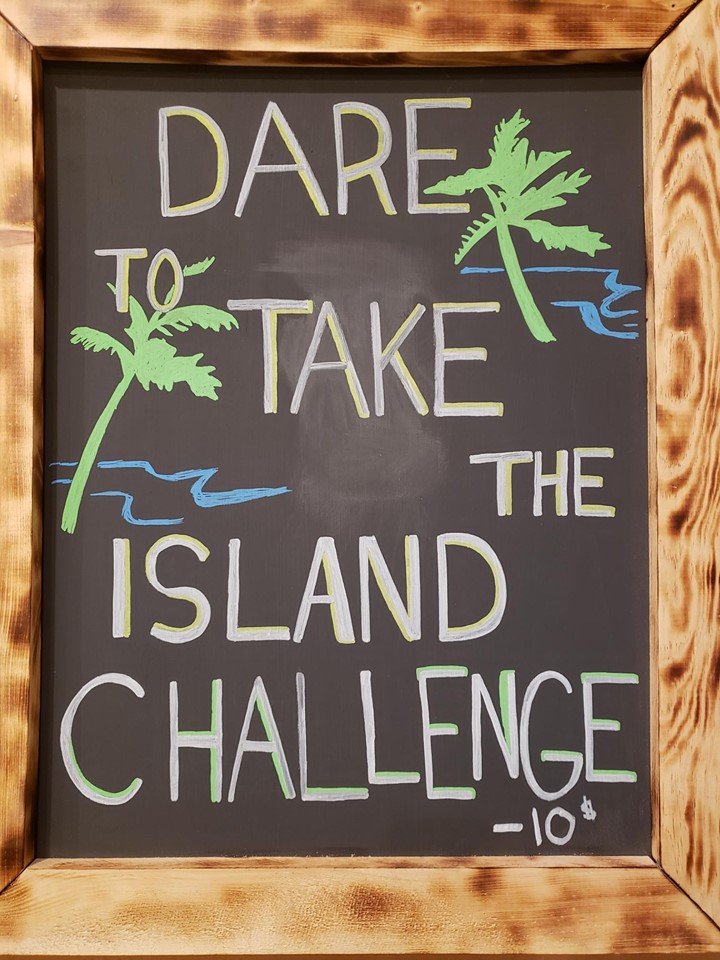 DARE
TO
TAKE
THE
ISLAND
CHALLENGE
-10$